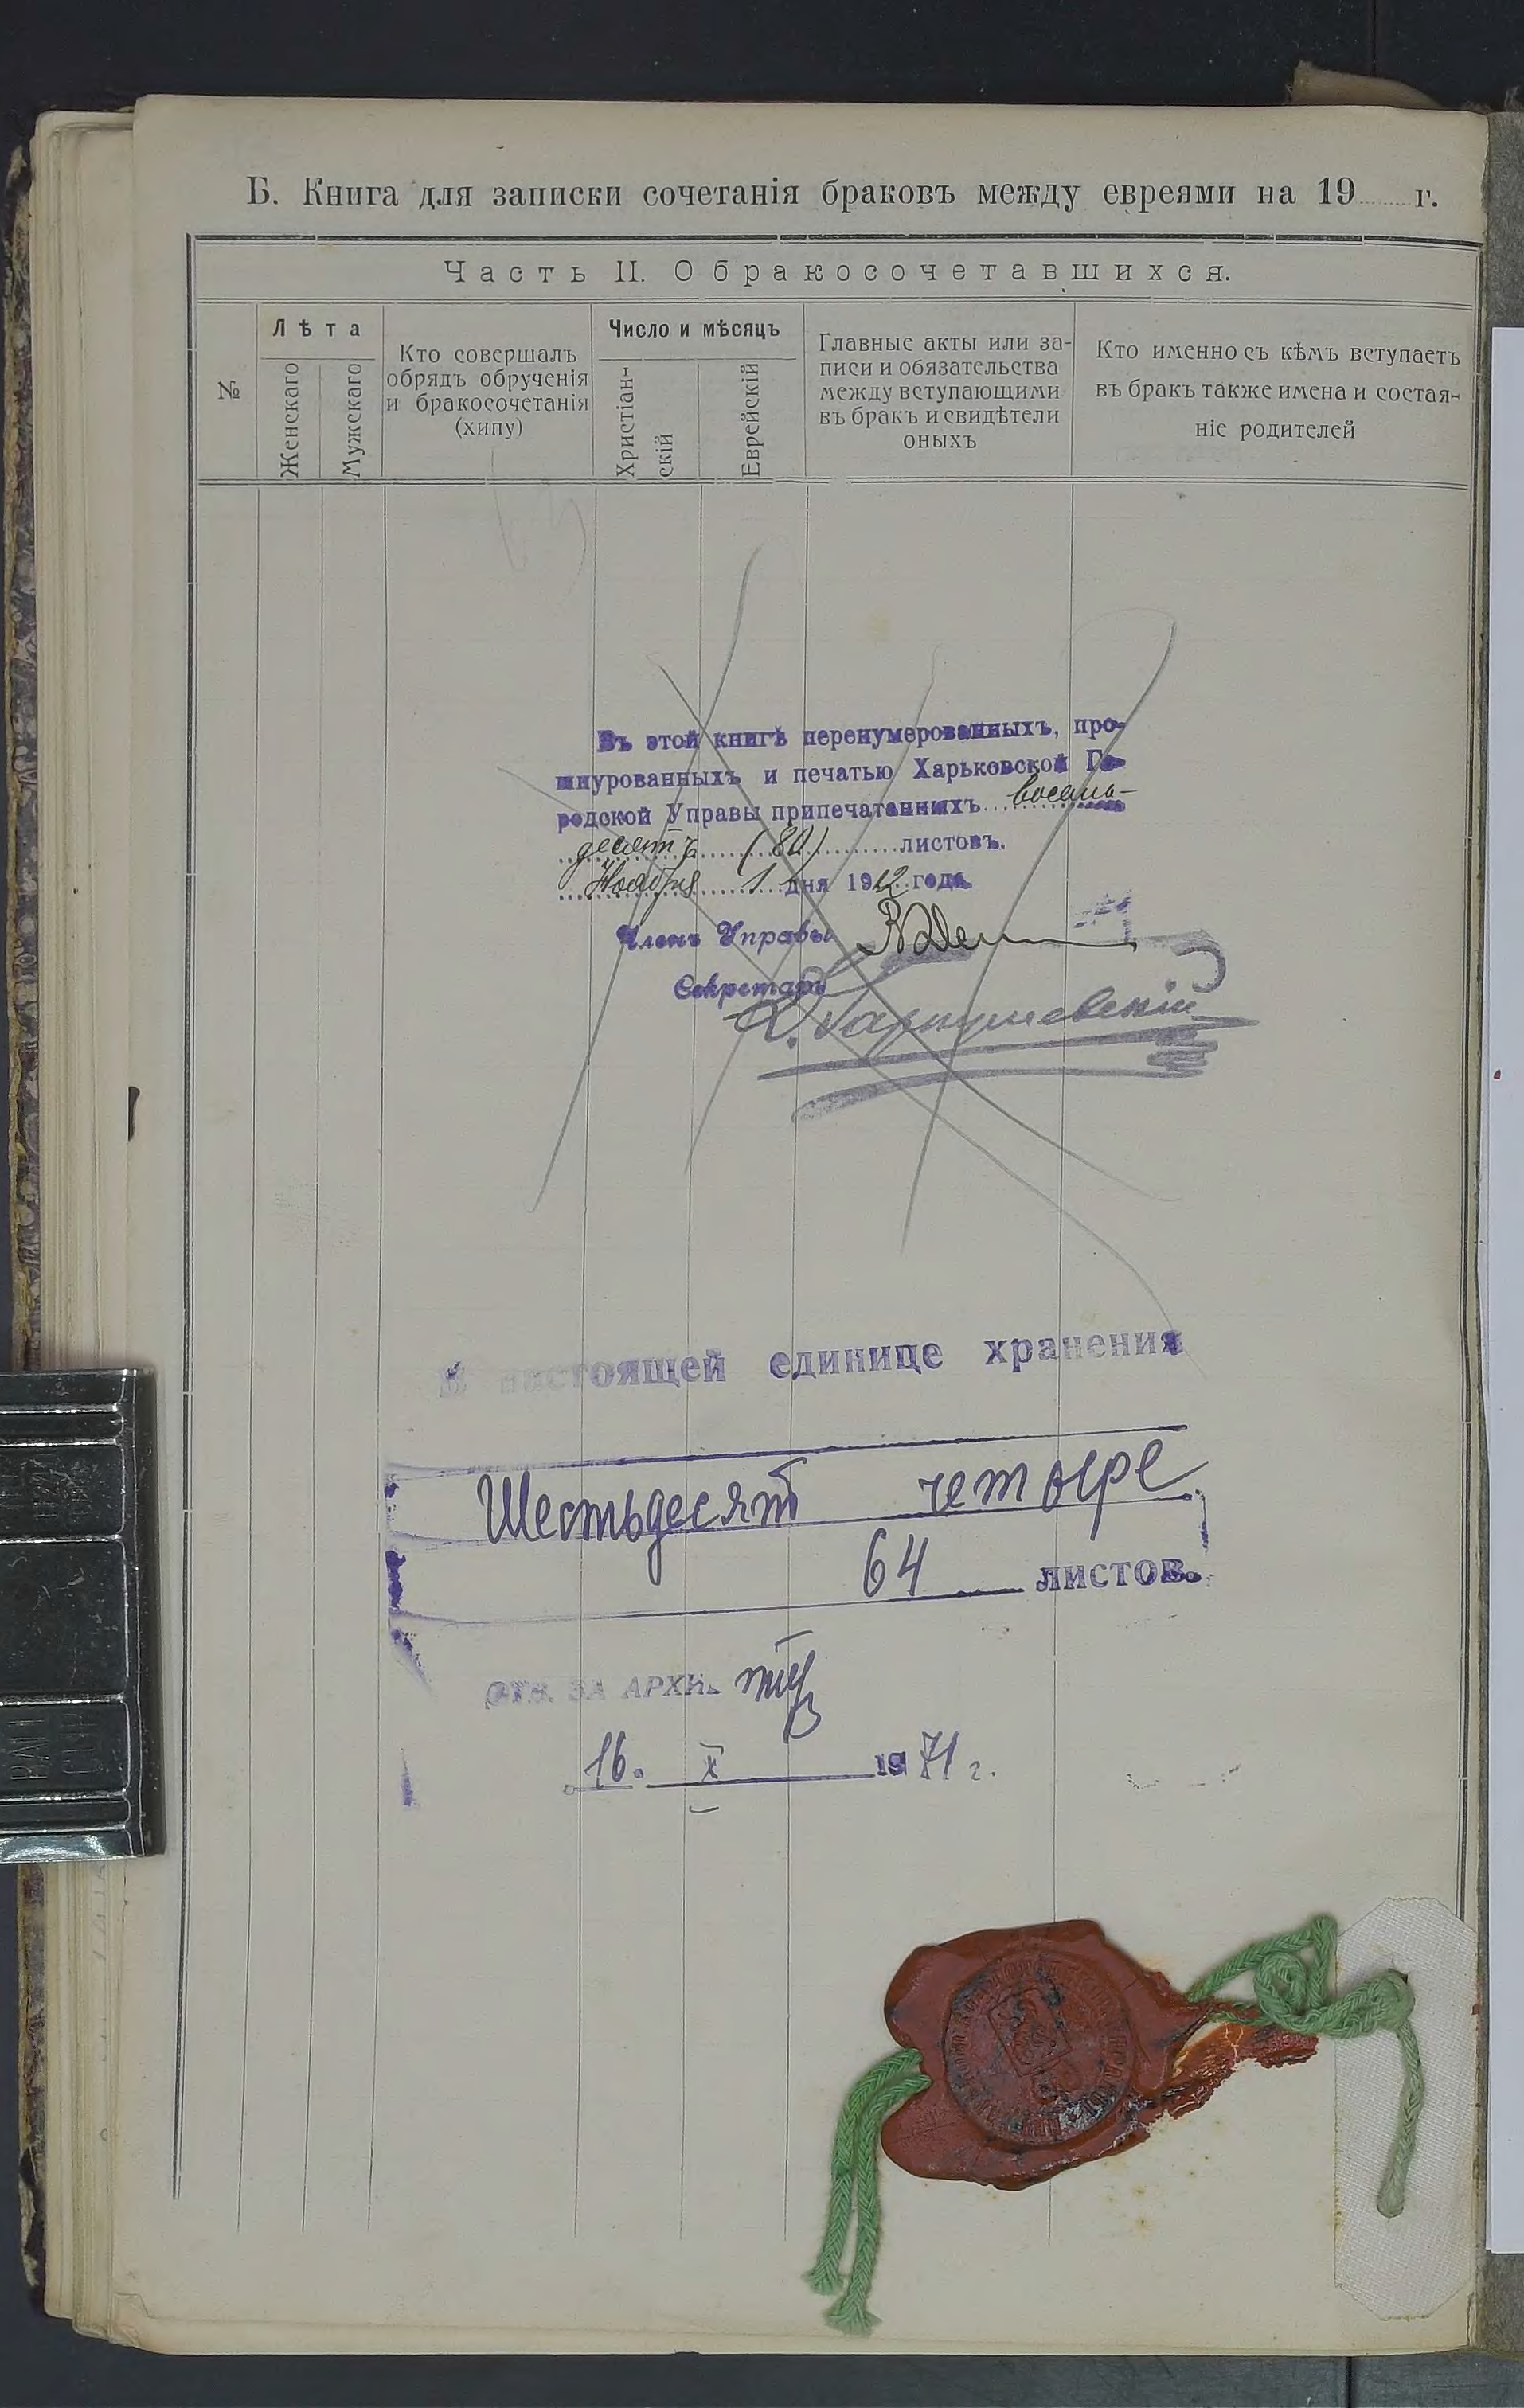 Б. Книга для записки сочетанія браковъ между евреями на 19 г.
Часть II. О бракосочетавшихся.
№
Лѣта
Женскаго
Мужскаго
Кто совершалъ
обрядъ обрученія
и бракосочетанія
(хипу)
Число и мѣсяцъ
Христіан-
скій
Еврейскій
Главные акты или за-
писи и обязательства
между вступающими
въ бракъ и свидѣтели
оныхъ
Кто именно съ кѣмъ вступаетъ
въ бракъ также имена и состая-
ніе родителей
Въ этой книгѣ перенумерованныхъ, про-
шнурованныхъ и печатью Харьковской Го-
родской Управы припечатанныхъ восемь-
десятъ (80) листовъ.
Ноября 1 дня 1912 года.
Членъ Управы
Секретарь
В настоящей единице хранения
Шестьдесят четыре
64 листов.
ОТВ. ЗА АРХИВ
16. X 1971 г.